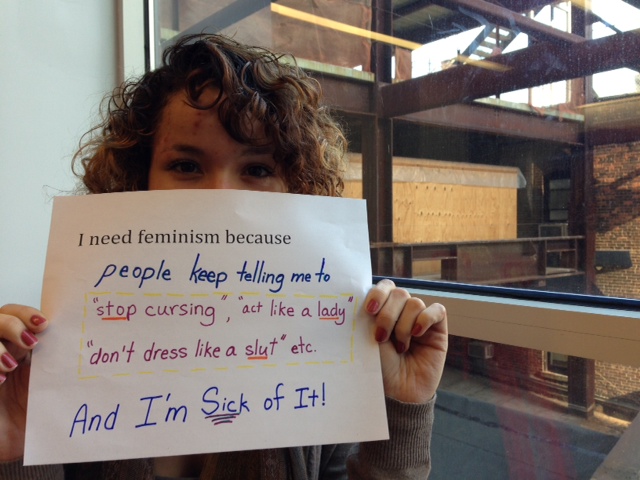 I need feminism because
people keep telling me to
"stop cursing", "act like a lady"
"don't dress like a slut" etc.
And I'm Sick of It!